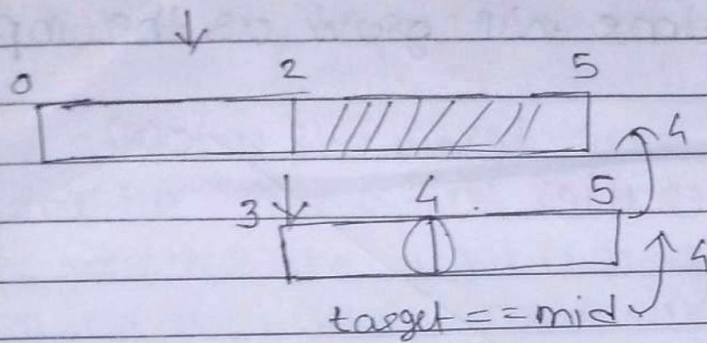 0 2 5
4
3 4 5
4
target == mid